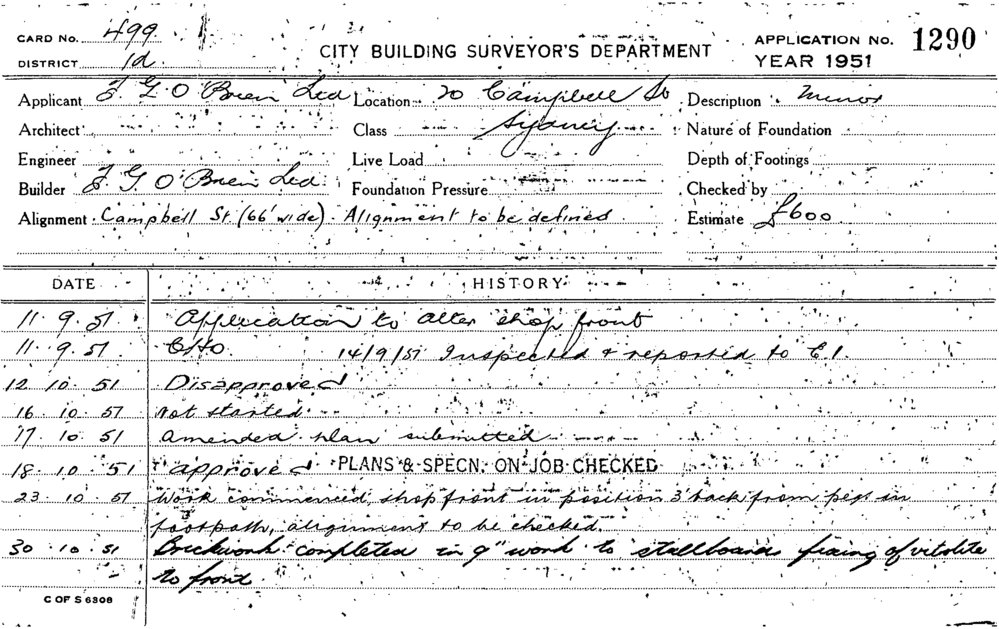 CARD No. 499
DISTRICT 1d
CITY BUILDING SURVEYOR'S DEPARTMENT
APPLICATION No. 1290
YEAR 1951
Applicant F. G. O'Brien Ltd Location 20 Campbell St Description Minor
Architect Class Sydney Nature of Foundation
Engineer Live Load Depth of Footings
Builder F. G. O'Brien Ltd. Foundation Pressure Checked by
Alignment Campbell St. (66' wide). Alignment to be defined. Estimate £600
DATE HISTORY
11. 9. 51 Application to alter shop front
11. 9. 51 14/9/51 Inspected & reported to E.I.
12. 10. 51 Disapproved
16. 10. 51 Not started.
17. 10. 51 Amended plan submitted
18. 10. 51 approved PLANS & SPECN. ON JOB CHECKED
23. 10. 51 Work commenced shop front in position 3" back from pegs in
footpath, alignment to be checked.
30. 10. 51 Brickwork completed in 9" work to stallboard fixing of vitrolite
to front.
C OF S 6308